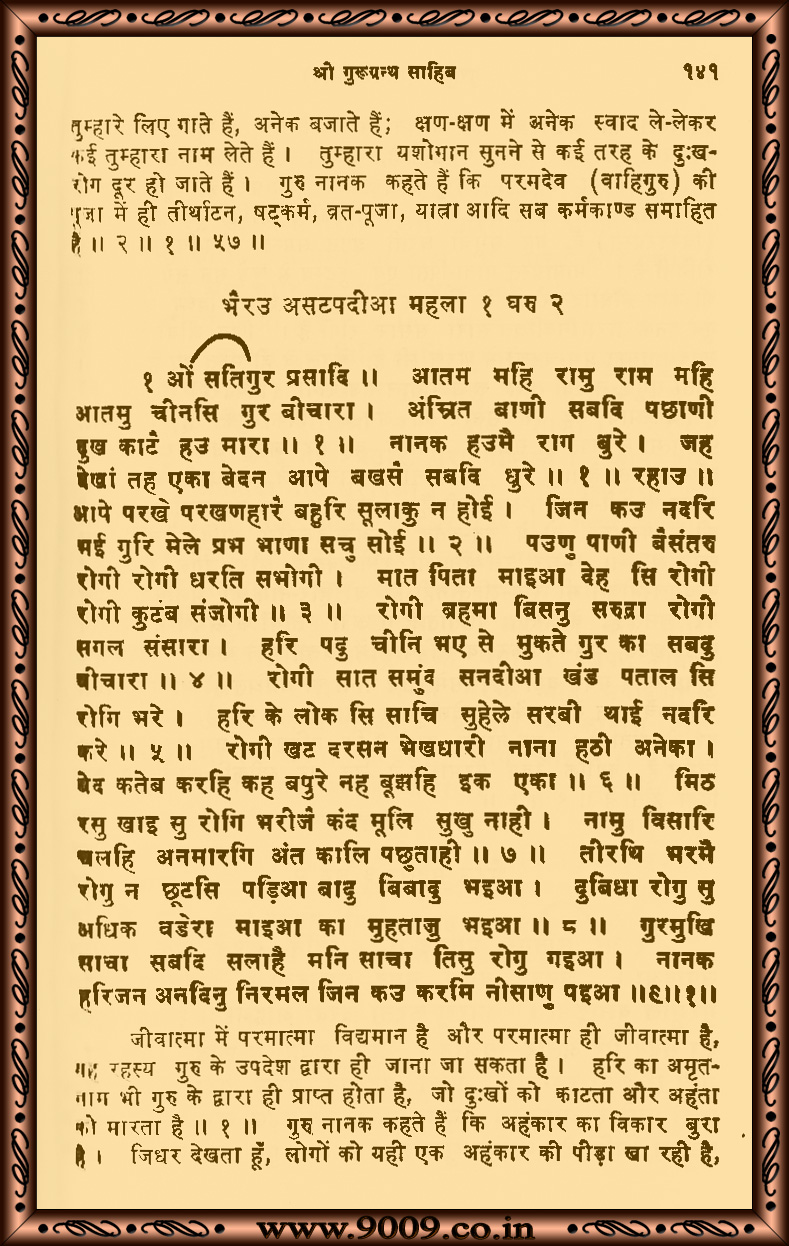 श्री गुरूग्रन्थ साहिब १४१
तुम्हारे लिए गाते हैं, अनेक बजाते हैं; क्षण-क्षण में अनेक स्वाद ले-लेकर
कई तुम्हारा नाम लेते हैं। तुम्हारा यशोगान सुनने से कई तरह के दुःख-
रोग दूर हो जाते हैं। गुरु नानक कहते हैं कि परमदेव (वाहिगुरु) की
पूजा में ही तीर्थाटन, षट्कर्म, व्रत-पूजा, यात्रा आदि सब कर्मकाण्ड समाहित
है॥ २॥ १॥ ५७॥
भैरउ असटपदीआ महला १ घरु २
१ ओं सतिगुर प्रसादि॥ आतम महि रामु राम महि
आतमु चीनसि गुर बीचारा। अंम्रित बाणी सबदि पछाणी
दुख काटै हउ मारा॥ १॥ नानक हउमै राग बुरे। जह
देखां तह एका बेदन आपे बखसै सबदि धुरे॥ १॥ रहाउ॥
आपे परखे परखणहारै बहुरि सूलाकु न होई। जिन कउ नदरि
भई गुरि मेले प्रभ भाणा सचु सोई॥ २॥ पउणु पाणी बैसंतरु
रोगी रोगी धरति सभोगी। मात पिता माइआ देह सि रोगी
रोगी कुटंब संजोगी॥ ३॥ रोगी ब्रहमा बिसनु सरुद्रा रोगी
सगल संसारा। हरि पदु चीनि भए से मुकते गुर का सबदु
बीचारा॥ ४॥ रोगी सात समुंद सनदीआ खंड पताल सि
रोगि भरे। हरि के लोक सि साचि सुहेले सरबी थाई नदरि
करे॥ ५॥ रोगी खट दरसन भेखधारी नाना हठी अनेका।
बेद कतेब करहि कह बपुरे नह बूझहि इक एका॥ ६॥ मिठ
रसु खाइ सु रोगि भरीजै कंद मूलि सुखु नाही। नामु विसारि
चलहि अनमारगि अंत कालि पछुताही॥ ७॥ तीरथि भरमै
रोगु न छूटसि पड़िआ बादु बिबादु भइआ। दुबिधा रोगु सु
अधिक वडेरा माइआ का मुहताजु भइआ॥ ८॥ गुरमुखि
साचा सबदि सलाहै मनि साचा तिसु रोगु गइआ। नानक
हरिजन अनदिनु निरमल जिन कउ करमि नीसाणु पइआ॥९॥१॥
जीवात्मा में परमात्मा विद्यमान है और परमात्मा ही जीवात्मा है,
यह रहस्य गुरु के उपदेश द्वारा ही जाना जा सकता है। हरि का अमृत-
नाम भी गुरु के द्वारा ही प्राप्त होता है, जो दुःखों को काटता और अहंता
को मारता है॥ १॥ गुरु नानक कहते हैं कि अहंकार का विकार बुरा
है। जिधर देखता हूँ, लोगों को यही एक अहंकार की पीड़ा खा रही है,
www.9009.co.in